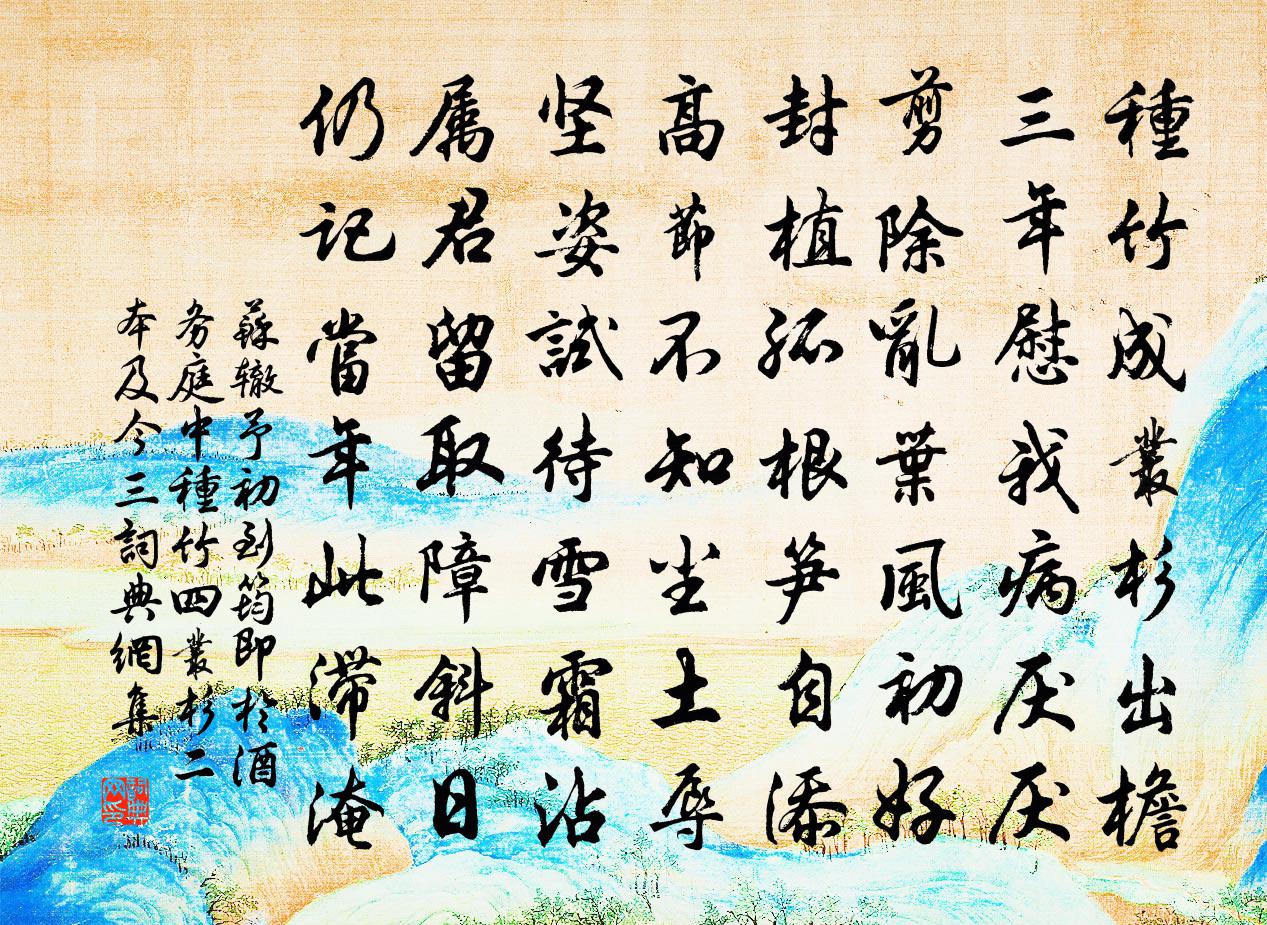 種竹成叢杉出檐
三年慰我病厌厌
剪除亂葉風初好
封植孤根笋自添
高節不知尘土辱
坚姿試待雪霜沾
属君留取障斜日
仍记當年此滞淹
蘇辙予初到筠即於酒
务庭中種竹四叢杉二
本及今三詞典網集